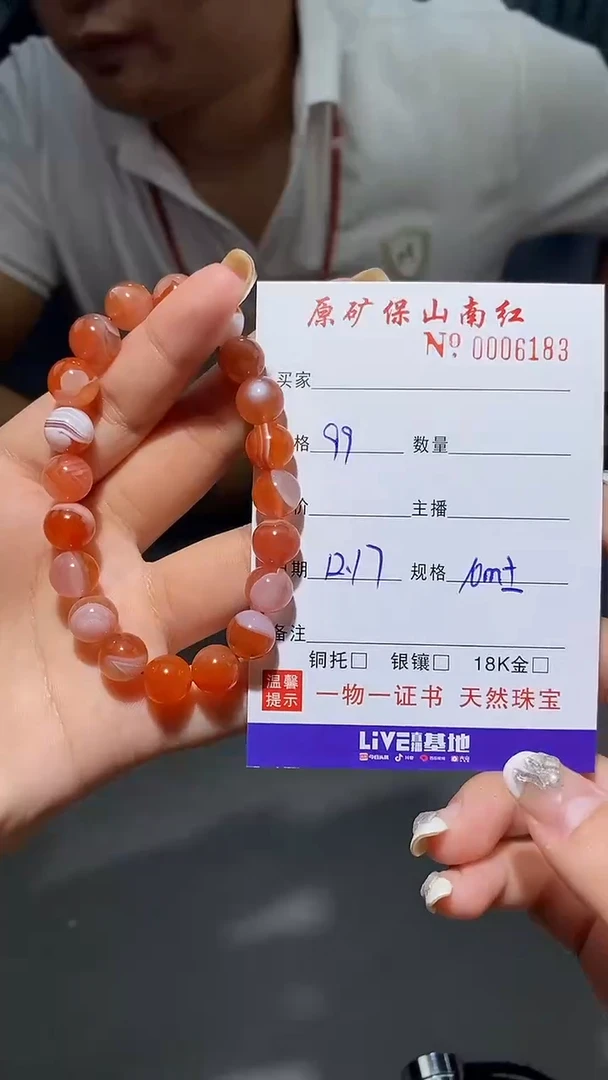 原矿保山南红
No. 0006183
买家
格 99 数量
价 主播
期 12.17 规格 10m±
备注
铜托□ 银镶□ 18K金□
温馨提示 一物一证书 天然珠宝
LiVE直播基地
今日头条 抖音